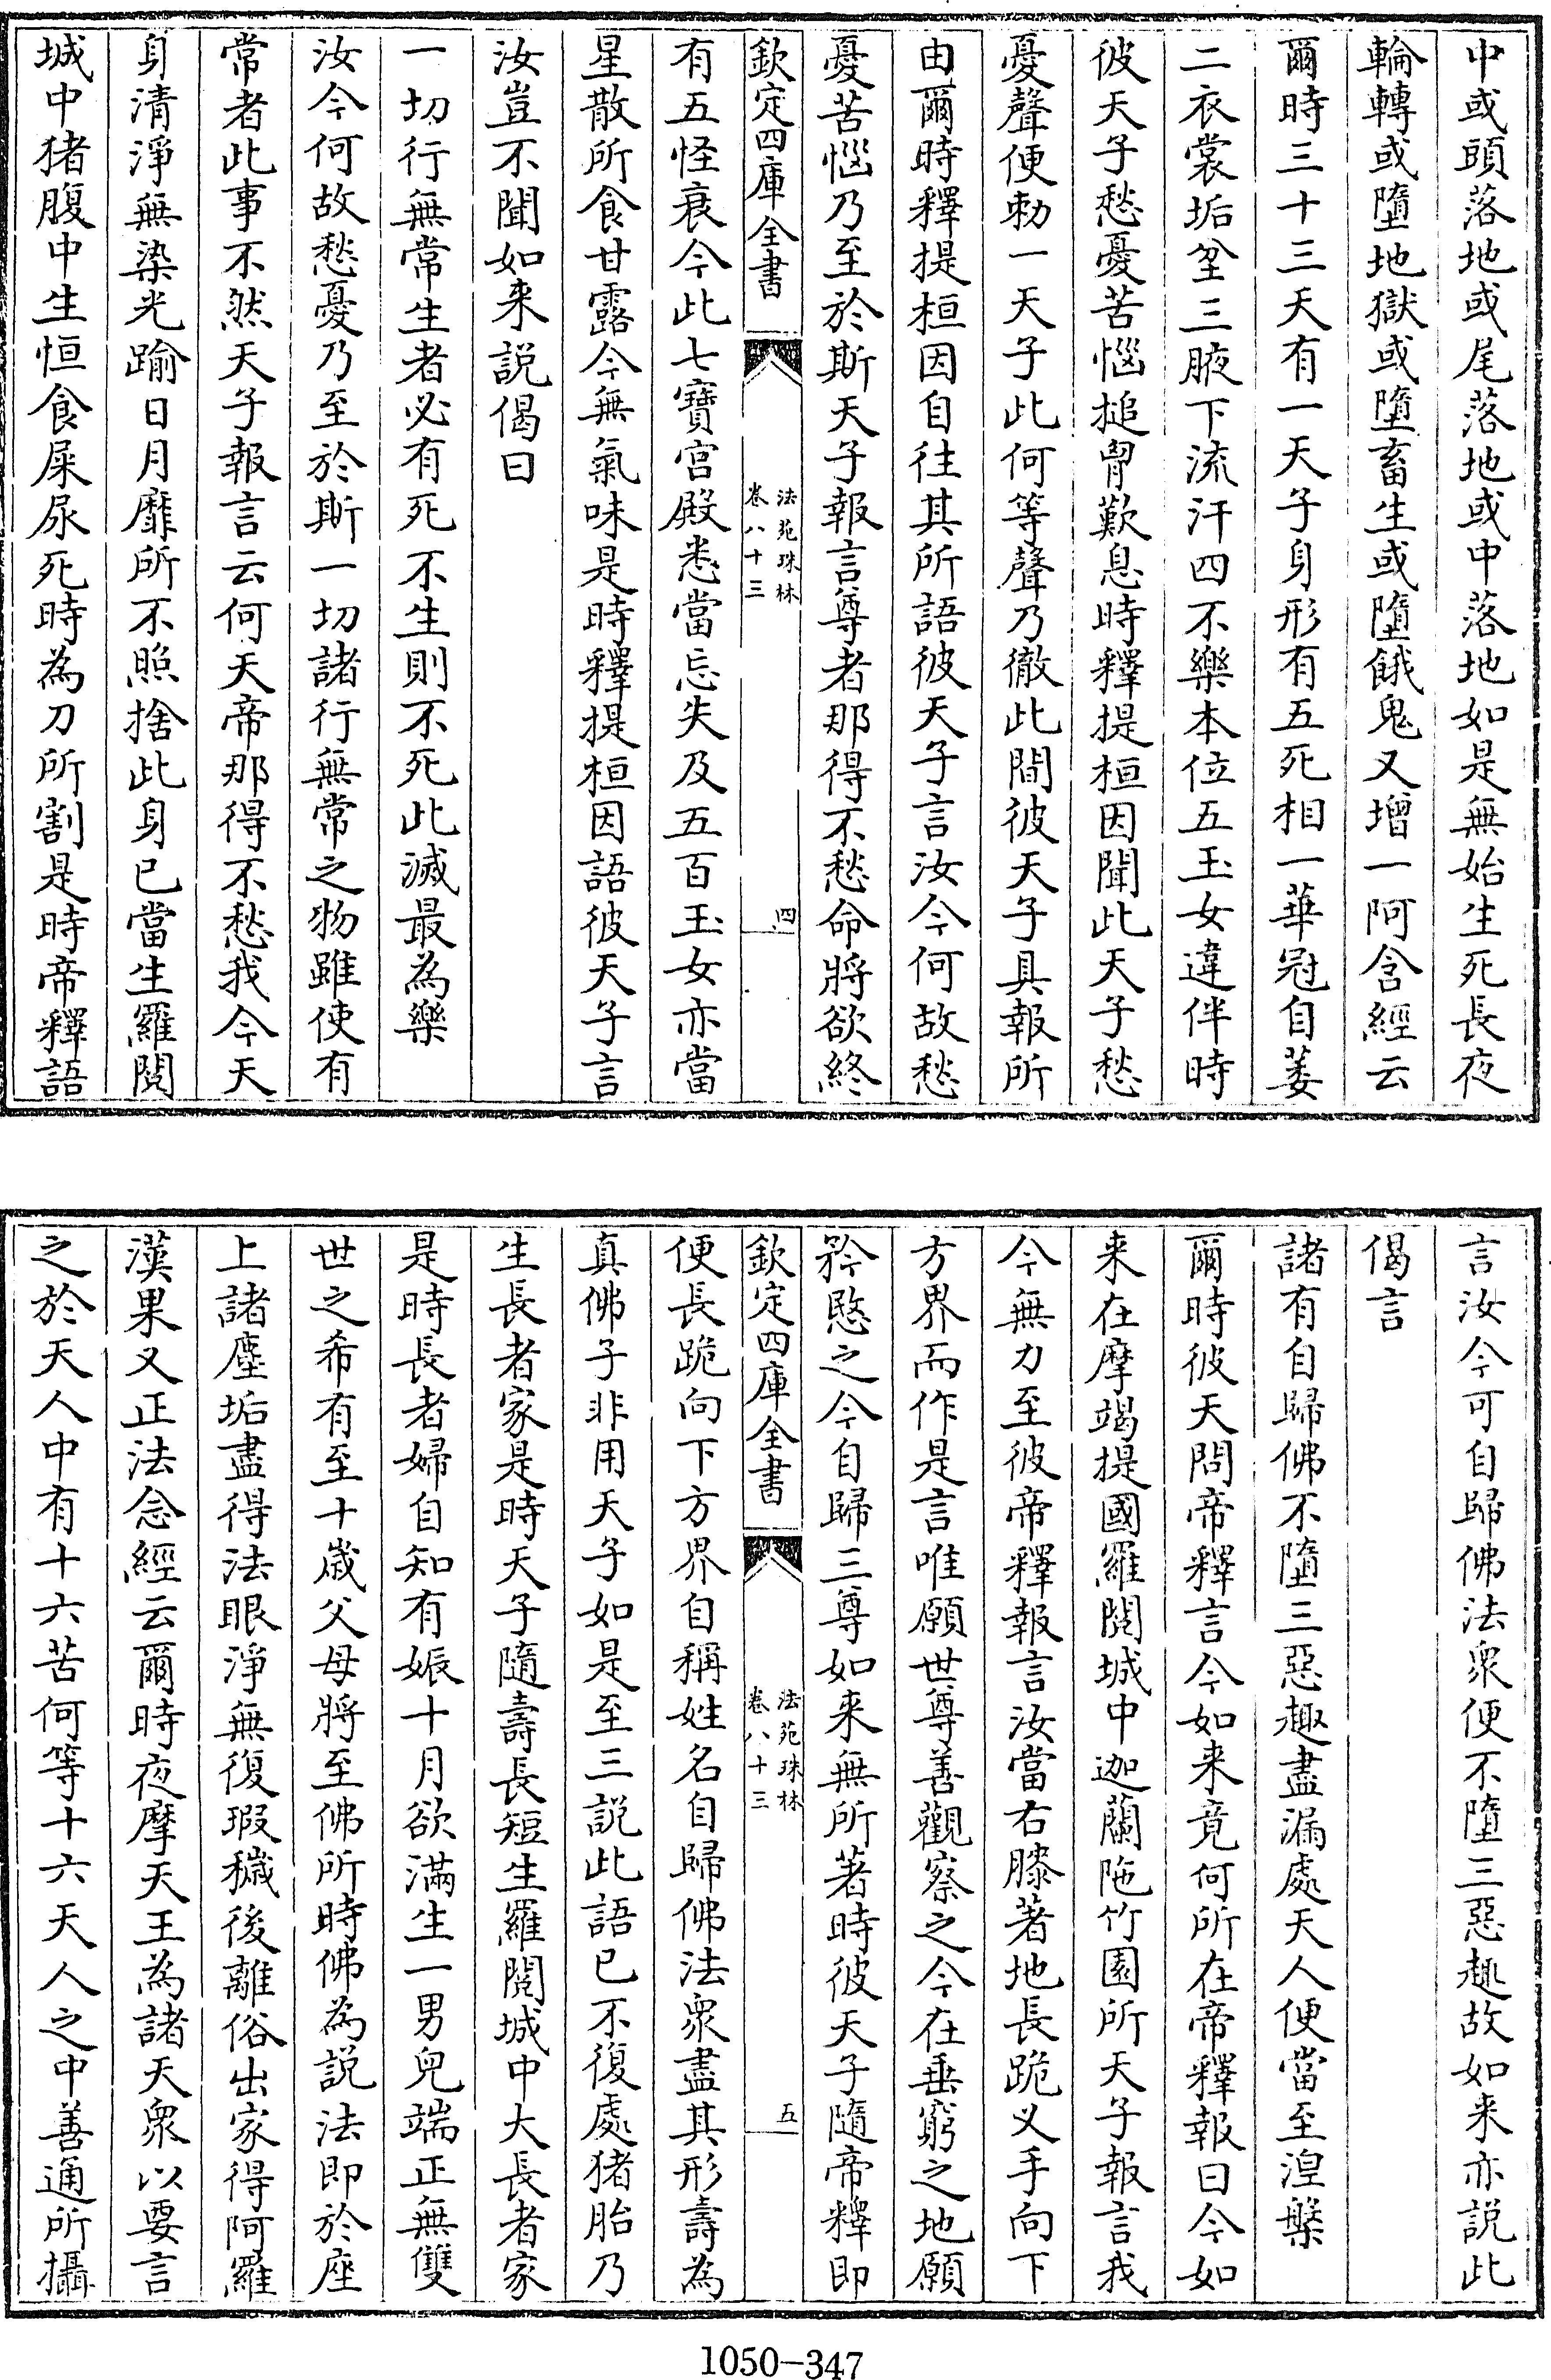 中或頭落地或尾落地或中落地如是無始生死長夜
輪轉或墮地獄或墮畜生或墮餓鬼又增一阿含經云
爾時三十三天有一天子身形有五死相一華冠自萎
二衣裳垢坌三腋下流汗四不樂本位五玉女違伴時
彼天子愁憂苦惱搥胷歎息時釋提桓因聞此天子愁
憂聲便勅一天子此何等聲乃徹此間彼天子具報所
由爾時釋提桓因自往其所語彼天子言汝今何故愁
憂苦惱乃至於斯天子報言尊者那得不愁命將欲終
欽定四庫全書
法苑珠林
卷八十三
四
有五怪衰今此七寶宮殿悉當忘失及五百玉女亦當
星散所食甘露今無氣味是時釋提桓因語彼天子言
汝豈不聞如来説偈曰
一切行無常生者必有死不生則不死此滅最為樂
汝今何故愁憂乃至於斯一切諸行無常之物雖使有
常者此事不然天子報言云何天帝那得不愁我今天
身清淨無染光踰日月靡所不照捨此身已當生羅閱
城中猪腹中生恒食屎尿死時為刀所割是時帝釋語
言汝今可自歸佛法衆便不墮三惡趣故如来亦説此
偈言
諸有自歸佛不墮三惡趣盡漏處天人便當至湼槃
爾時彼天問帝釋言今如来竟何所在帝釋報曰今如
来在摩竭提國羅閱城中迦蘭陁竹園所天子報言我
今無力至彼帝釋報言汝當右膝著地長跪义手向下
方界而作是言唯願世尊善觀察之今在垂窮之地願
矜愍之今自歸三尊如来無所著時彼天子隨帝釋即
欽定四庫全書
法苑珠林
卷八十三
五
便長跪向下方界自稱姓名自歸佛法衆盡其形壽為
真佛子非用天子如是至三説此語已不復處猪胎乃
生長者家是時天子隨壽長短生羅閱城中大長者家
是時長者婦自知有娠十月欲滿生一男兒端正無雙
世之希有至十歲父母將至佛所時佛為説法即於座
上諸塵垢盡得法眼淨無復瑕穢後離俗出家得阿羅
漢果又正法念經云爾時夜摩天王為諸天衆以要言
之於天人中有十六苦何等十六天人之中善通所攝
1050-347